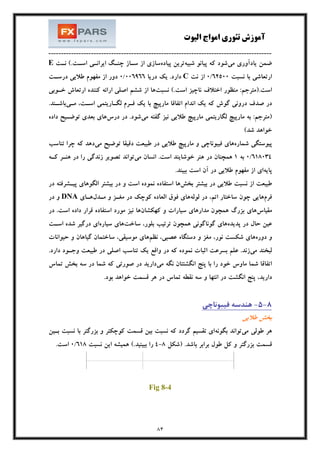 FXPARS
آموزش تئوری امواج الیوت
ضمن یادآوری می‌شود که پیانو شبیه‌ترین پیاده‌سازی از ساز چنگ ایرانسی است.) نت E
ارتعاشی با نسبت ۰/۶۲۵۰۰ از نت C دارد. یک دریا ۰/۰۰۶۹۶۶ دور از مفهوم طلایی درست
است.(مترجم: منظور اختلاف ناچیز است.) نسبت‌ها از ششم اصلی ارائه کننده ارتعاش خوبی
در صدف درونی گوش که یک اندام اتفاقا مارپیچ با یک فرم لگاریتمی است، می‌باشند.
(مترجم: به مارپیچ لگاریتمی مارپیچ طلایی نیز گفته می‌شود. در درس‌های بعدی توضیح داده
خواهد شد)
پیوستگی شماره‌های فیبوناچی و مارپیچ طلایی در طبیعت دقیقا توضیح می‌دهد که چرا تناسب
۰/۶۱۸۰۳۴ به ۱ همچنان در هنر خوشایند است. انسان می‌تواند تصویر زندگی را در هنر که
پایه‌ای از مفهوم طلایی در آن است ببیند.
طبیعت از نسبت طلایی در بیشتر بخش‌ها استفاده نموده است و در بیشتر الگوهای پیشرفته در
فرم‌هایی چون ساختار اتم، در لوله‌های فوق العاده کوچک در مغز و مدل‌های DNA و در
مقیاس‌های بزرگ همچون مدارهای سیارات و کهکشان‌ها نیز مورد استفاده قرار داده است. در
عین حال در پدیده‌های گوناگونی همچون ترتیب بلور، ساخت‌های سیاره‌ای درگیر شده است
و دوره‌های شکست نور، مغز و دستگاه عصبی، نظم‌های موسیقی، ساختمان گیاهان و حیوانات
لبخند می‌زند. علم بسرعت اثبات نموده که در واقع یک تناسب اصلی در طبیعت وجود دارد.
اتفاقا شما ماوس خود را با پنج انگشتتان نگه می‌دارید در صورتی که شما در سه بخش تماس
دارید، پنج انگشت در انتها و سه نقطه تماس در هر قسمت خواهد بود.
۵-۸- هندسه فیبوناچی
بخش طلایی
هر طولی می‌تواند بگونه‌ای تقسیم گردد که نسبت بین قسمت کوچکتر و بزرگتر با نسبت بین
قسمت بزرگتر و کل طول برابر باشد. (شکل ۸-۴ را ببینید.) همیشه این نسبت ۰/۶۱۸ است.
Fig 8-4
۸۲